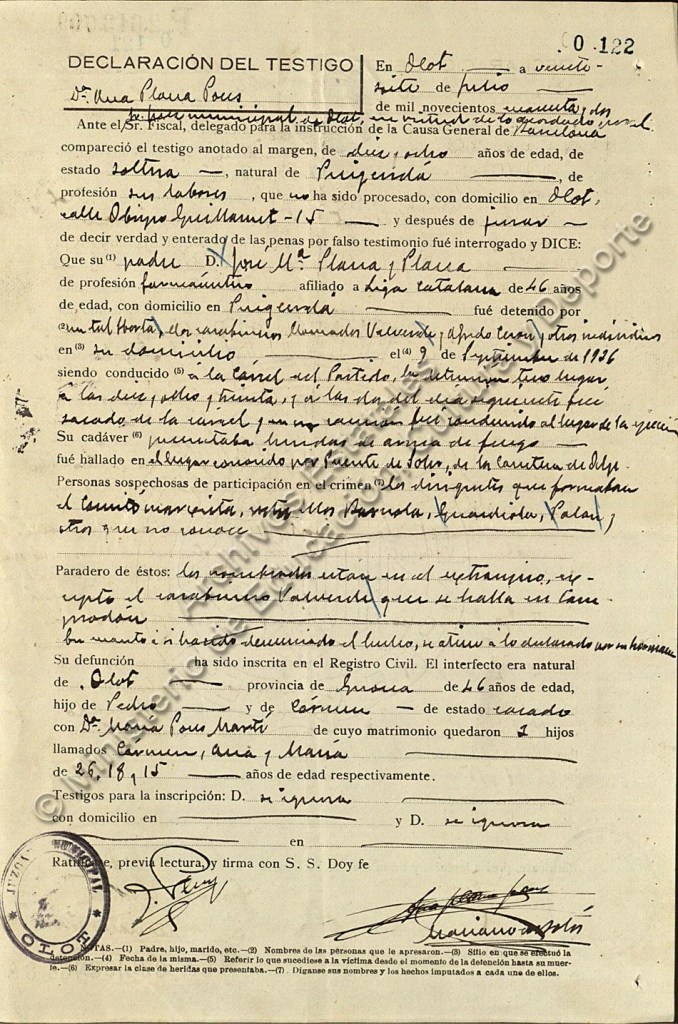 0 122
DECLARACIÓN DEL TESTIGO
Dª Ana Plana Pons
En Olot a veinti-
siete de julio
de mil novecientos cuarenta y dos
Sr. Juez municipal de Olot, en virtud de lo acordado por el
Ante el Sr. Fiscal, delegado para la instrucción de la Causa General de Barcelona
compareció el testigo anotado al margen, de diez y ocho años de edad, de
estado soltera, natural de Puigcerdá, de
profesión sus labores, que no ha sido procesado, con domicilio en Olot,
calle Obispo Guillamet - 15 y después de jurar
de decir verdad y enterado de las penas por falso testimonio fué interrogado y DICE:
Que su (1) padre D. José Mª Plana y Plana
de profesión farmacéutico afiliado a Liga Catalana de 46 años
de edad, con domicilio en Puigcerdá fué detenido por
(2) un tal dos carabineros llamados Valverde y Alfredo y otros individuos
en (3) su domicilio el (4) 9 de Septiembre de 1936
siendo conducido (5) a la Cárcel del Partido, la detención tuvo lugar
a las diez y ocho y treinta, y a las dos del día siguiente fué
sacado de la cárcel y en un camión fué conducido al lugar de la ejecución
Su cadáver (6) presentaba heridas de arma de fuego
fué hallado en el lugar conocido por Puente de de la Carretera de
Personas sospechosas de participación en el crimen (7) los dirigentes que formaban
el Comité marxista, entre ellos y
otros que no conoce
Paradero de éstos: los nombrados están en el extranjero, ex-
cepto el carabinero Valverde que se halla en Cam-
prodón
En cuanto a si ha sido denunciado el hecho, se atiene a lo declarado por su hermana
Su defunción ha sido inscrita en el Registro Civil. El interfecto era natural
de Olot provincia de Gerona de 46 años de edad,
hijo de Pedro y de Cármen de estado casado
con Dª María Pons Martí de cuyo matrimonio quedaron 3 hijos
llamados Cármen, Ana y María
de 26, 18, 15 años de edad respectivamente.
Testigos para la inscripción: D. se ignora
con domicilio en y D. se ignora
en
Ratifíese, previa lectura, y firma con S. S. Doy fe
Ana Plana Pons
JUZGADO MUNICIPAL
* OLOT *
NOTAS.—(1) Padre, hijo, marido, etc.—(2) Nombres de las personas que le apresaron.—(3) Sitio en que se efectuó la
detención.—(4) Fecha de la misma.—(5) Referir lo que sucediese a la víctima desde el momento de la detención hasta su muer-
te.—(6) Expresar la clase de heridas que presentaba.—(7) Díganse sus nombres y los hechos imputados a cada uno de ellos.
© Ministerio de Educación, Cultura y Deporte
Archivos Estatales